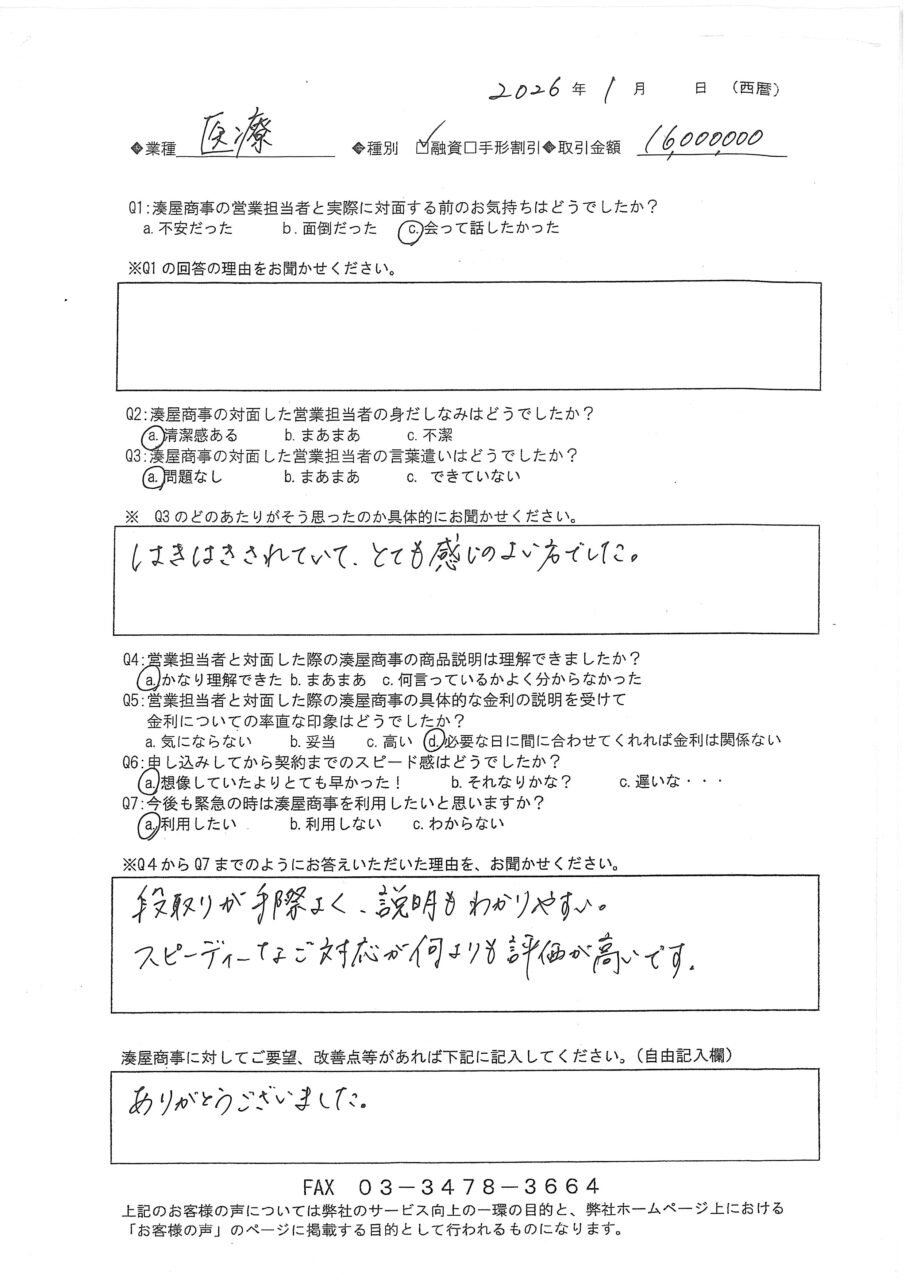 2026年 1月 日 (西暦)
◆業種 医療 ◆種別 ☑融資□手形割引◆取引金額 16,000,000
Q1:湊屋商事の営業担当者と実際に対面する前のお気持ちはどうでしたか?
a.不安だった b.面倒だった c.会って話したかった
※Q1の回答の理由をお聞かせください。
Q2:湊屋商事の対面した営業担当者の身だしなみはどうでしたか?
a.清潔感ある b.まあまあ c.不潔
Q3:湊屋商事の対面した営業担当者の言葉遣いはどうでしたか?
a.問題なし b.まあまあ c. できていない
※ Q3のどのあたりがそう思ったのか具体的にお聞かせください。
はきはきされていて、とても感じのよい方でした。
Q4:営業担当者と対面した際の湊屋商事の商品説明は理解できましたか?
a.かなり理解できた b.まあまあ c.何言っているかよく分からなかった
Q5:営業担当者と対面した際の湊屋商事の具体的な金利の説明を受けて
金利についての率直な印象はどうでしたか?
a.気にならない b.妥当 c.高い d.必要な日に間に合わせてくれれば金利は関係ない
Q6:申し込みしてから契約までのスピード感はどうでしたか?
a.想像していたよりとても早かった! b.それなりかな? c.遅いな・・・
Q7:今後も緊急の時は湊屋商事を利用したいと思いますか?
a.利用したい b.利用しない c.わからない
※Q4からQ7までのようにお答えいただいた理由を、お聞かせください。
段取りが手際よく、説明もわかりやすい。
スピーディーなご対応が何よりも評価が高いです。
湊屋商事に対してご要望、改善点等があれば下記に記入してください。(自由記入欄)
ありがとうございました。
FAX 03-3478-3664
上記のお客様の声については弊社のサービス向上の一環の目的と、弊社ホームページ上における
「お客様の声」のページに掲載する目的として行われるものになります。